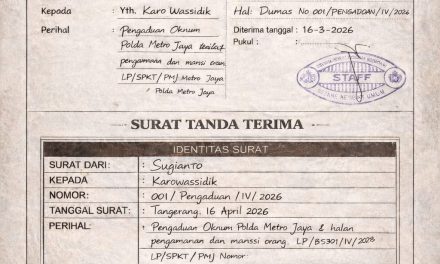 Kepada : Yth. Karo Wassidik
Hal: Dumas No 001/PENGADOAN/IV/2026
Perihal : Pengaduan Oknum
Diterima tanggal : 16-3-2026
Polda Metro Jaya
Pukul :
pengamanan dan mansi oran.
LP/SPKT/PMJ Metro Jaya
Polda Metro Jaya
STAFF
SURAT TANDA TERIMA
IDENTITAS SURAT
SURAT DARI: : Sugianto
KEPADA : Karowassidik
NOMOR: : 001/Pengaduan/IV/2026
TANGGAL SURAT: : Tangerang, 16 April 2026
PERIHAL: : Pengaduan Oknum Polda Metro Jaya & halan
pengamanan dan manssi orang. LP/B5301/IV/2028
LP/SPKT/PMJ Nomor